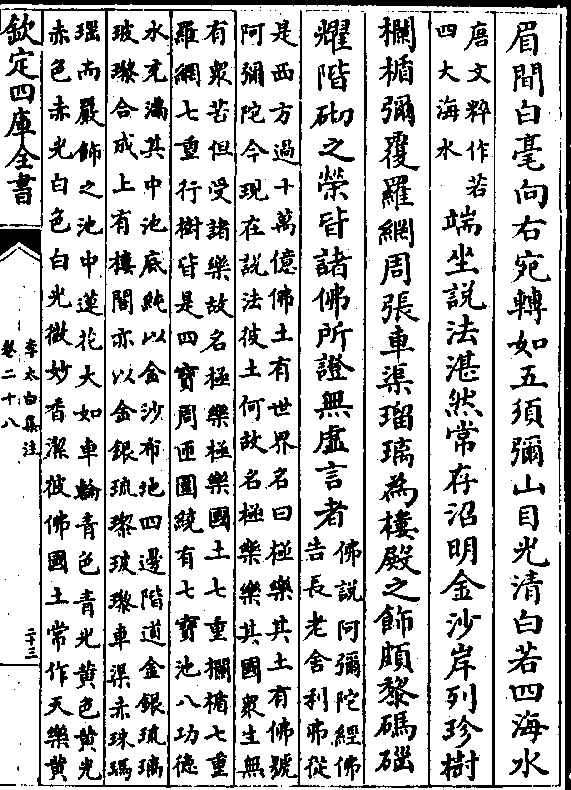 眉間白毫向右宛轉如五須彌山目光清白若四海水
唐文粹作若
四大海水
端坐說法湛然常存沼明金沙岸列珍樹
欄楯彌覆羅網周張車渠瑠璃為樓殿之飾頗黎碼碯
耀階砌之榮皆諸佛所證無虛言者
佛說阿彌陀經佛
告長老舍利弗從
是西方過十萬億佛土有世界名曰極樂其土有佛號
阿彌陀今現在說法彼土何故名極樂樂其國衆生無
有衆苦但受諸樂故名極樂極樂國土七重欄楯七重
羅網七重行樹皆是四寶周匝圍繞有七寶池八功德
水充滿其中池底純以金沙布地四邊階道金銀琉璃
玻瓈合成上有樓閣亦以金銀琉瓈玻瓈車渠赤珠瑪
瑙而嚴飾之池中蓮花大如車輪青色青光黃色黃光
赤色赤光白色白光微妙香潔彼佛國土常作天樂黃
欽定四庫全書
李太白集注
卷二十八
二十三